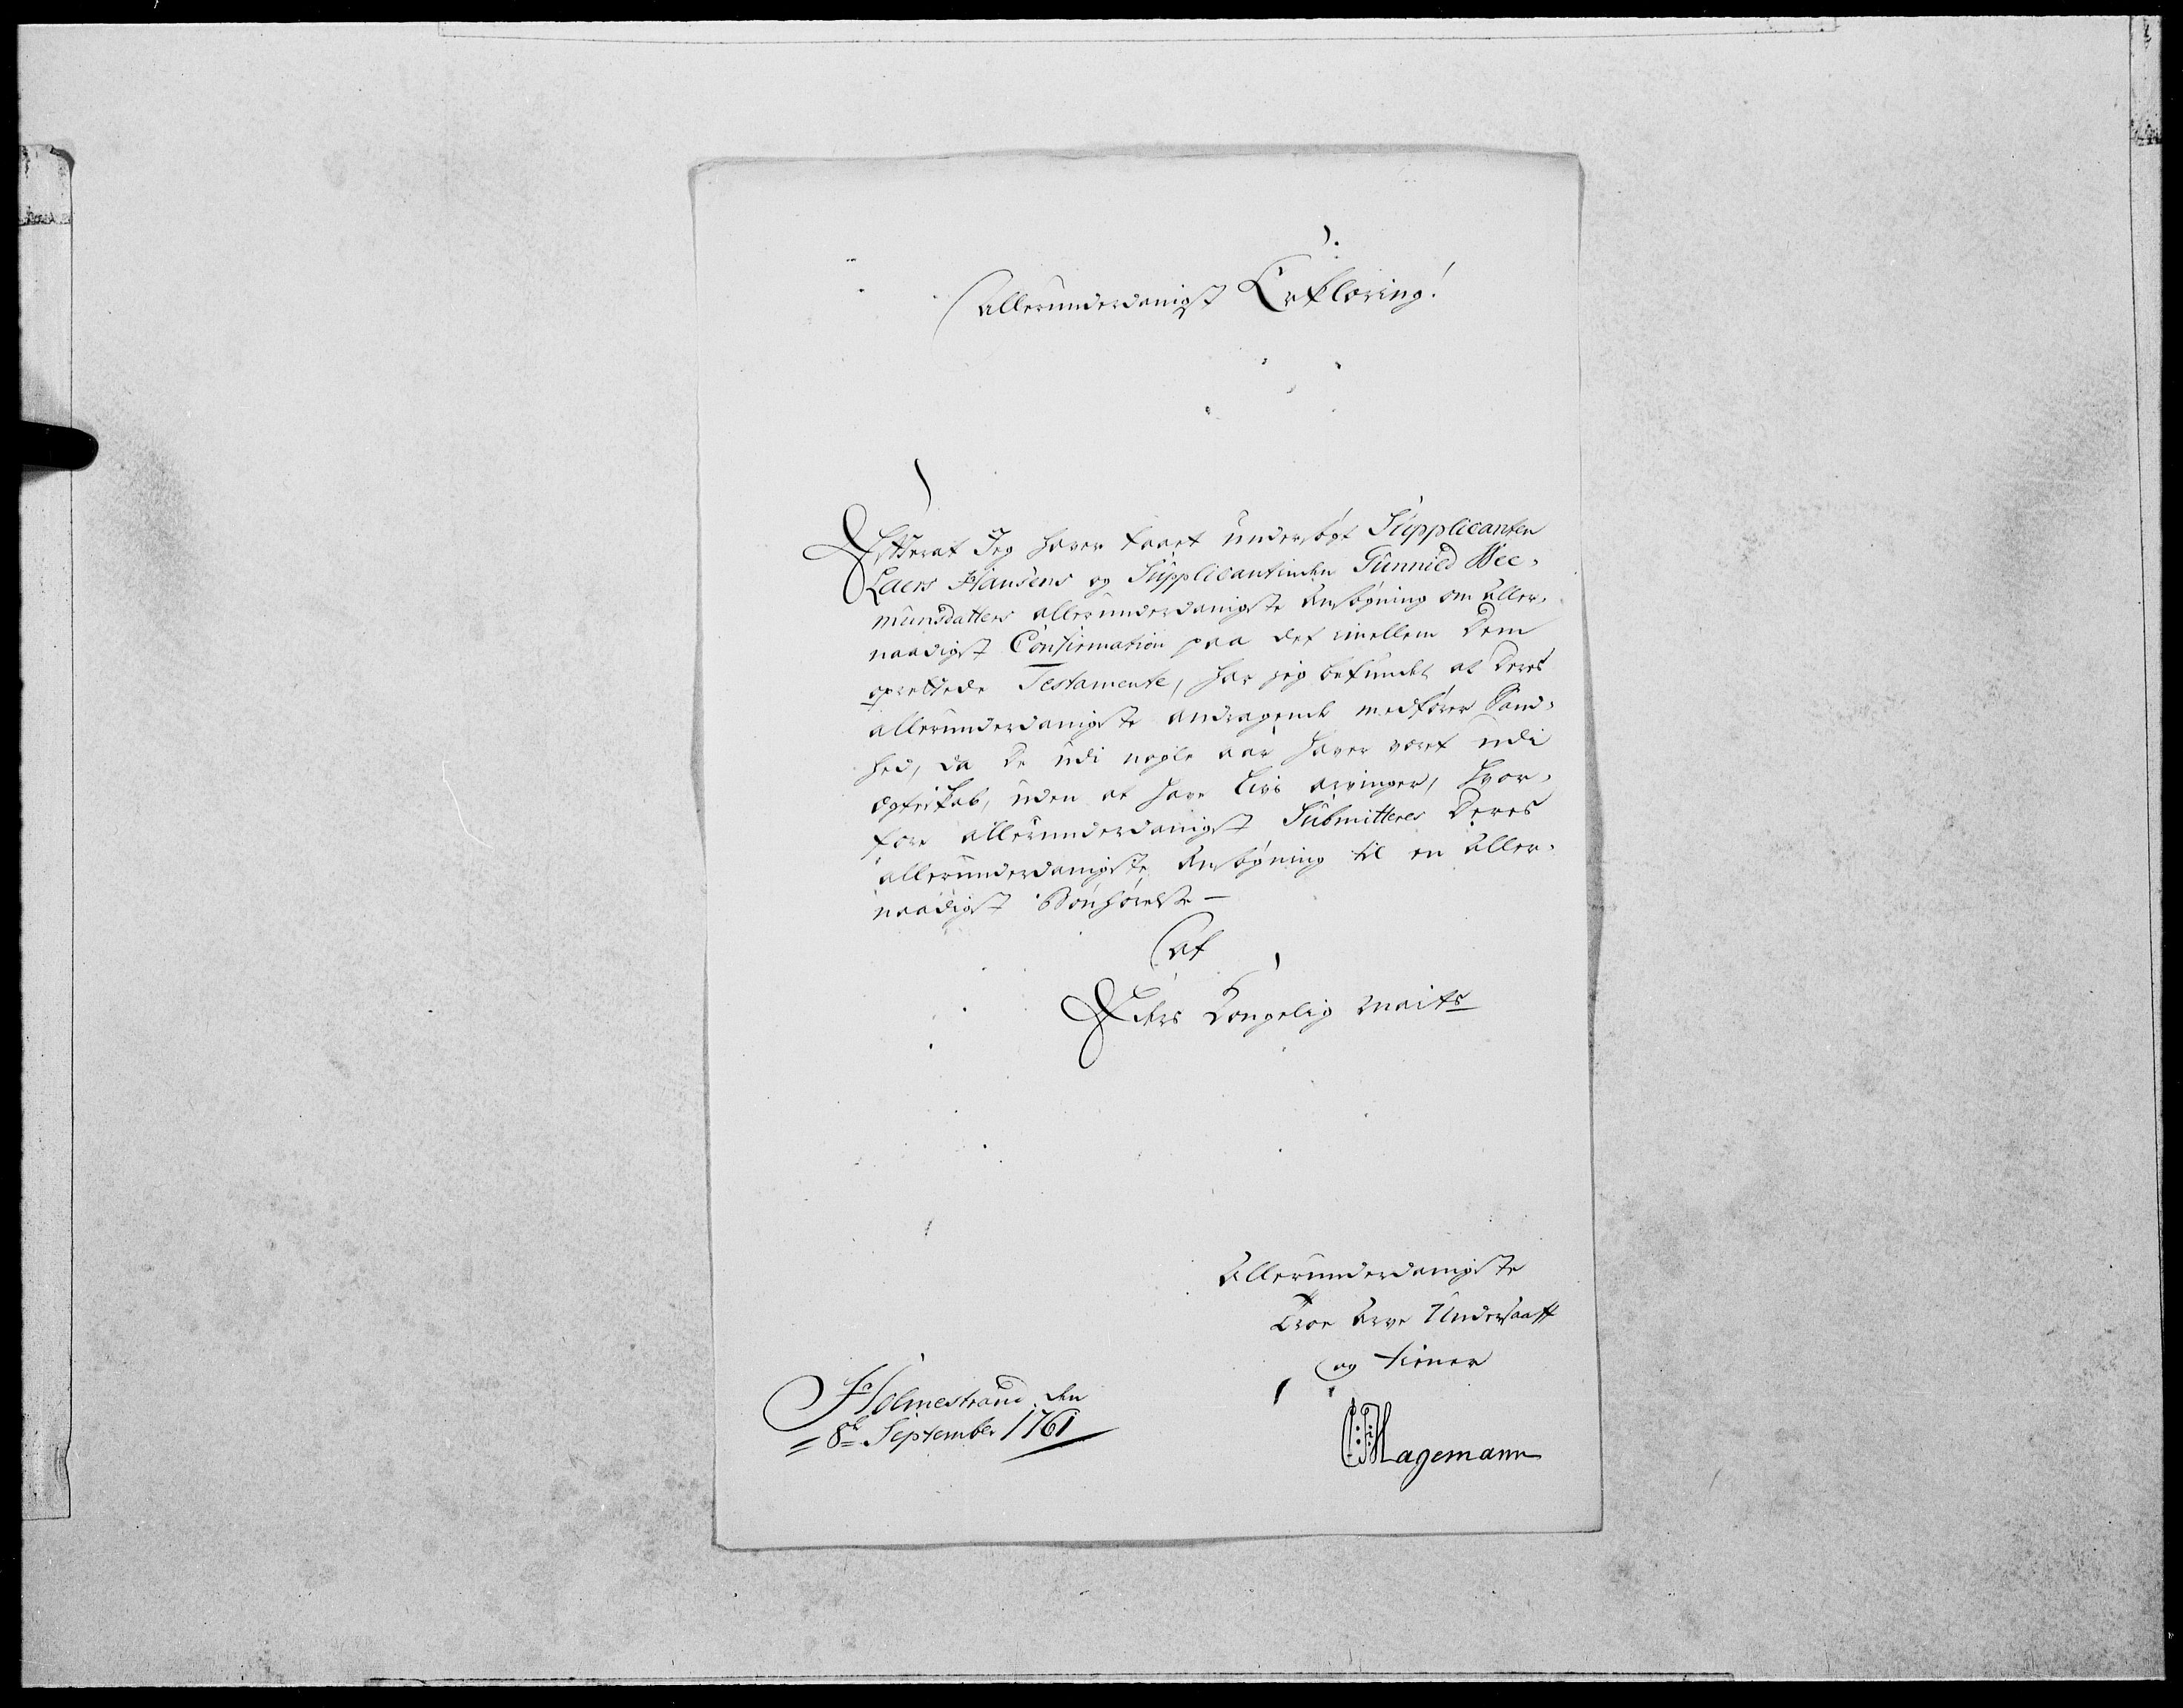 Allerunderdanigst Erklæring!
Efterat Jeg haver taaet undersøgt Supplicanten
Laers Hansens og Supplicantinden Gunnild Wee-
munsdatters allerunderdanigste Ansøgning om aller-
naadigst Confirmation paa det imellem Dem
oprettede Testamente, har jeg befundet at Deres
allerunderdanigste andragende medfører Sand-
hed, da De udi nogle aar haver været udi
ægteskab, uden at have Livs arvinger, hvor-
fore allerunderdanigst Submitteres Deres
allerunderdanigste Ansøgning til en aller-
naadigst Bønhørelse -
Af
Eders Kongelig Maits
Allerunderdanigste
Troe Arve Undersaatt
og tiener
Holmestrand den
8de September 1761
Hagemann